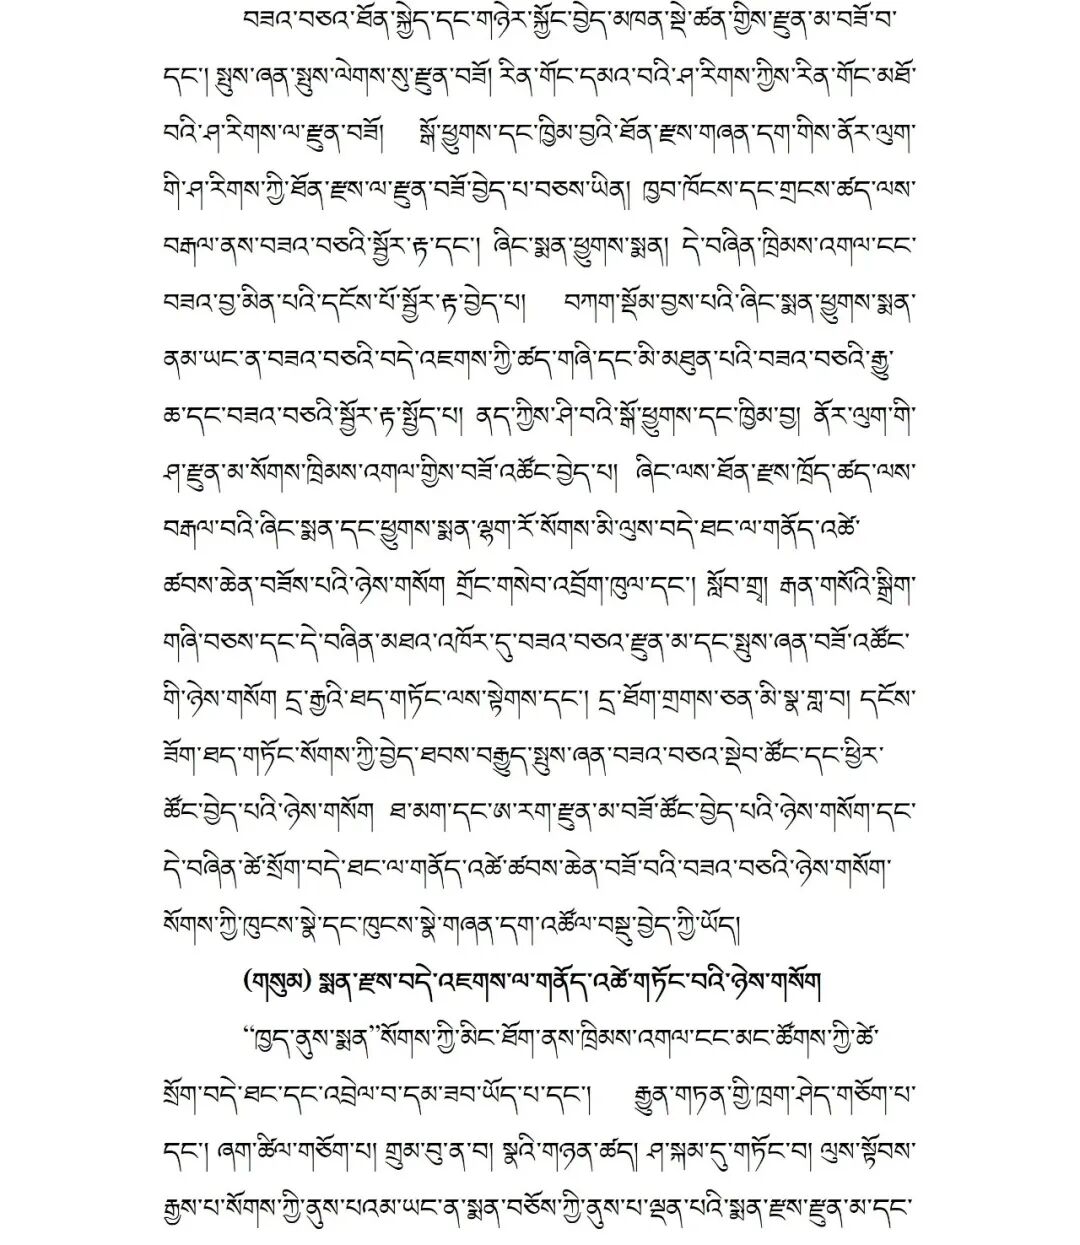 བཟའ་བཅའ་ཐོན་སྐྱེད་དང་གཉེར་སྐྱོང་བྱེད་མཁན་སྡེ་ཚན་གྱིས་རྫུན་མ་བཟོ་བ་
དང་། སྤུས་ཞན་སྤུས་ལེགས་སུ་རྫུན་བཟོ། རིན་གོང་དམའ་བའི་ཤ་རིགས་ཀྱིས་རིན་གོང་མཐོ་
བའི་ཤ་རིགས་ལ་རྫུན་བཟོ། སྒོ་ཕྱུགས་དང་ཁྱིམ་བྱའི་ཐོན་རྫས་གཞན་དག་གིས་ནོར་ལུག་
གི་ཤ་རིགས་ཀྱི་ཐོན་རྫས་ལ་རྫུན་བཟོ་བྱེད་པ་བཅས་ཡིན། ཁྱབ་ཁོངས་དང་གྲངས་ཚད་ལས་
བརྒལ་ནས་བཟའ་བཅའི་སྦྱོར་རྟ་དང་། ཞིང་སྨན་ཕྱུགས་སྨན། དེ་བཞིན་ཁྲིམས་འགལ་ངང་
བཟའ་བྱ་མིན་པའི་དངོས་པོ་སྦྱོར་རྟ་བྱེད་པ། བཀག་སྡོམ་བྱས་པའི་ཞིང་སྨན་ཕྱུགས་སྨན་
ནམ་ཡང་ན་བཟའ་བཅའི་བདེ་འཇགས་ཀྱི་ཚད་གཞི་དང་མི་མཐུན་པའི་བཟའ་བཅའི་རྒྱུ་
ཆ་དང་བཟའ་བཅའི་སྦྱོར་རྟ་སྤྱོད་པ། ནད་ཀྱིས་ཤི་བའི་སྒོ་ཕྱུགས་དང་ཁྱིམ་བྱ། ནོར་ལུག་གི་
ཤ་རྫུན་མ་སོགས་ཁྲིམས་འགལ་གྱིས་བཟོ་འཚོང་བྱེད་པ། ཞིང་ལས་ཐོན་རྫས་ཁྲོད་ཚད་ལས་
བརྒལ་བའི་ཞིང་སྨན་དང་ཕྱུགས་སྨན་ལྷག་རོ་སོགས་མི་ལུས་བདེ་ཐང་ལ་གནོད་འཚེ་
ཚབས་ཆེན་བཟོས་པའི་ཉེས་གསོག གྲོང་གསེབ་འབྲོག་ཁུལ་དང་། སློབ་གྲྭ། རྒན་གསོའི་སྒྲིག་
གཞི་བཅས་དང་དེ་བཞིན་མཐའ་འཁོར་དུ་བཟའ་བཅའ་རྫུན་མ་དང་སྤུས་ཞན་བཟོ་འཚོང་
གི་ཉེས་གསོག དྲ་རྒྱའི་ཐད་གཏོང་ལས་སྟེགས་དང་། དྲ་ཐོག་གྲགས་ཅན་མི་སྣ་གླ་བ། དངོས་
ཟོག་ཐད་གཏོང་སོགས་ཀྱི་བྱེད་ཐབས་བརྒྱུད་སྤུས་ཞན་བཟའ་བཅའ་སྡེབ་ཚོང་དང་ཕྱིར་
ཚོང་བྱེད་པའི་ཉེས་གསོག ཐ་མག་དང་ཨ་རག་རྫུན་མ་བཟོ་ཚོང་བྱེད་པའི་ཉེས་གསོག་དང་
དེ་བཞིན་ཚེ་སྲོག་བདེ་ཐང་ལ་གནོད་འཚེ་ཚབས་ཆེན་བཟོ་བའི་བཟའ་བཅའི་ཉེས་གསོག་
སོགས་ཀྱི་ཁུངས་སྣེ་དང་ཁུངས་སྣེ་གཞན་དག་འཚོལ་བསྡུ་བྱེད་ཀྱི་ཡོད།
(གསུམ) སྨན་རྫས་བདེ་འཇགས་ལ་གནོད་འཚེ་གཏོང་བའི་ཉེས་གསོག
“ཁྱད་ནུས་སྨན”སོགས་ཀྱི་མིང་ཐོག་ནས་ཁྲིམས་འགལ་ངང་མང་ཚོགས་ཀྱི་ཚེ་
སྲོག་བདེ་ཐང་དང་འབྲེལ་བ་དམ་ཟབ་ཡོད་པ་དང་། རྒྱུན་གཏན་གྱི་ཁྲག་ཤེད་གཅོག་པ་
དང་། ཞག་ཚིལ་གཅོག་པ། གྲུམ་བུ་ན་བ། སྣའི་གཉན་ཚད། ཤ་སྐམ་དུ་གཏོང་བ། ལུས་སྟོབས་
རྒྱས་པ་སོགས་ཀྱི་ནུས་པའམ་ཡང་ན་སྨན་བཅོས་ཀྱི་ནུས་པ་ལྡན་པའི་སྨན་རྫས་རྫུན་མ་དང་